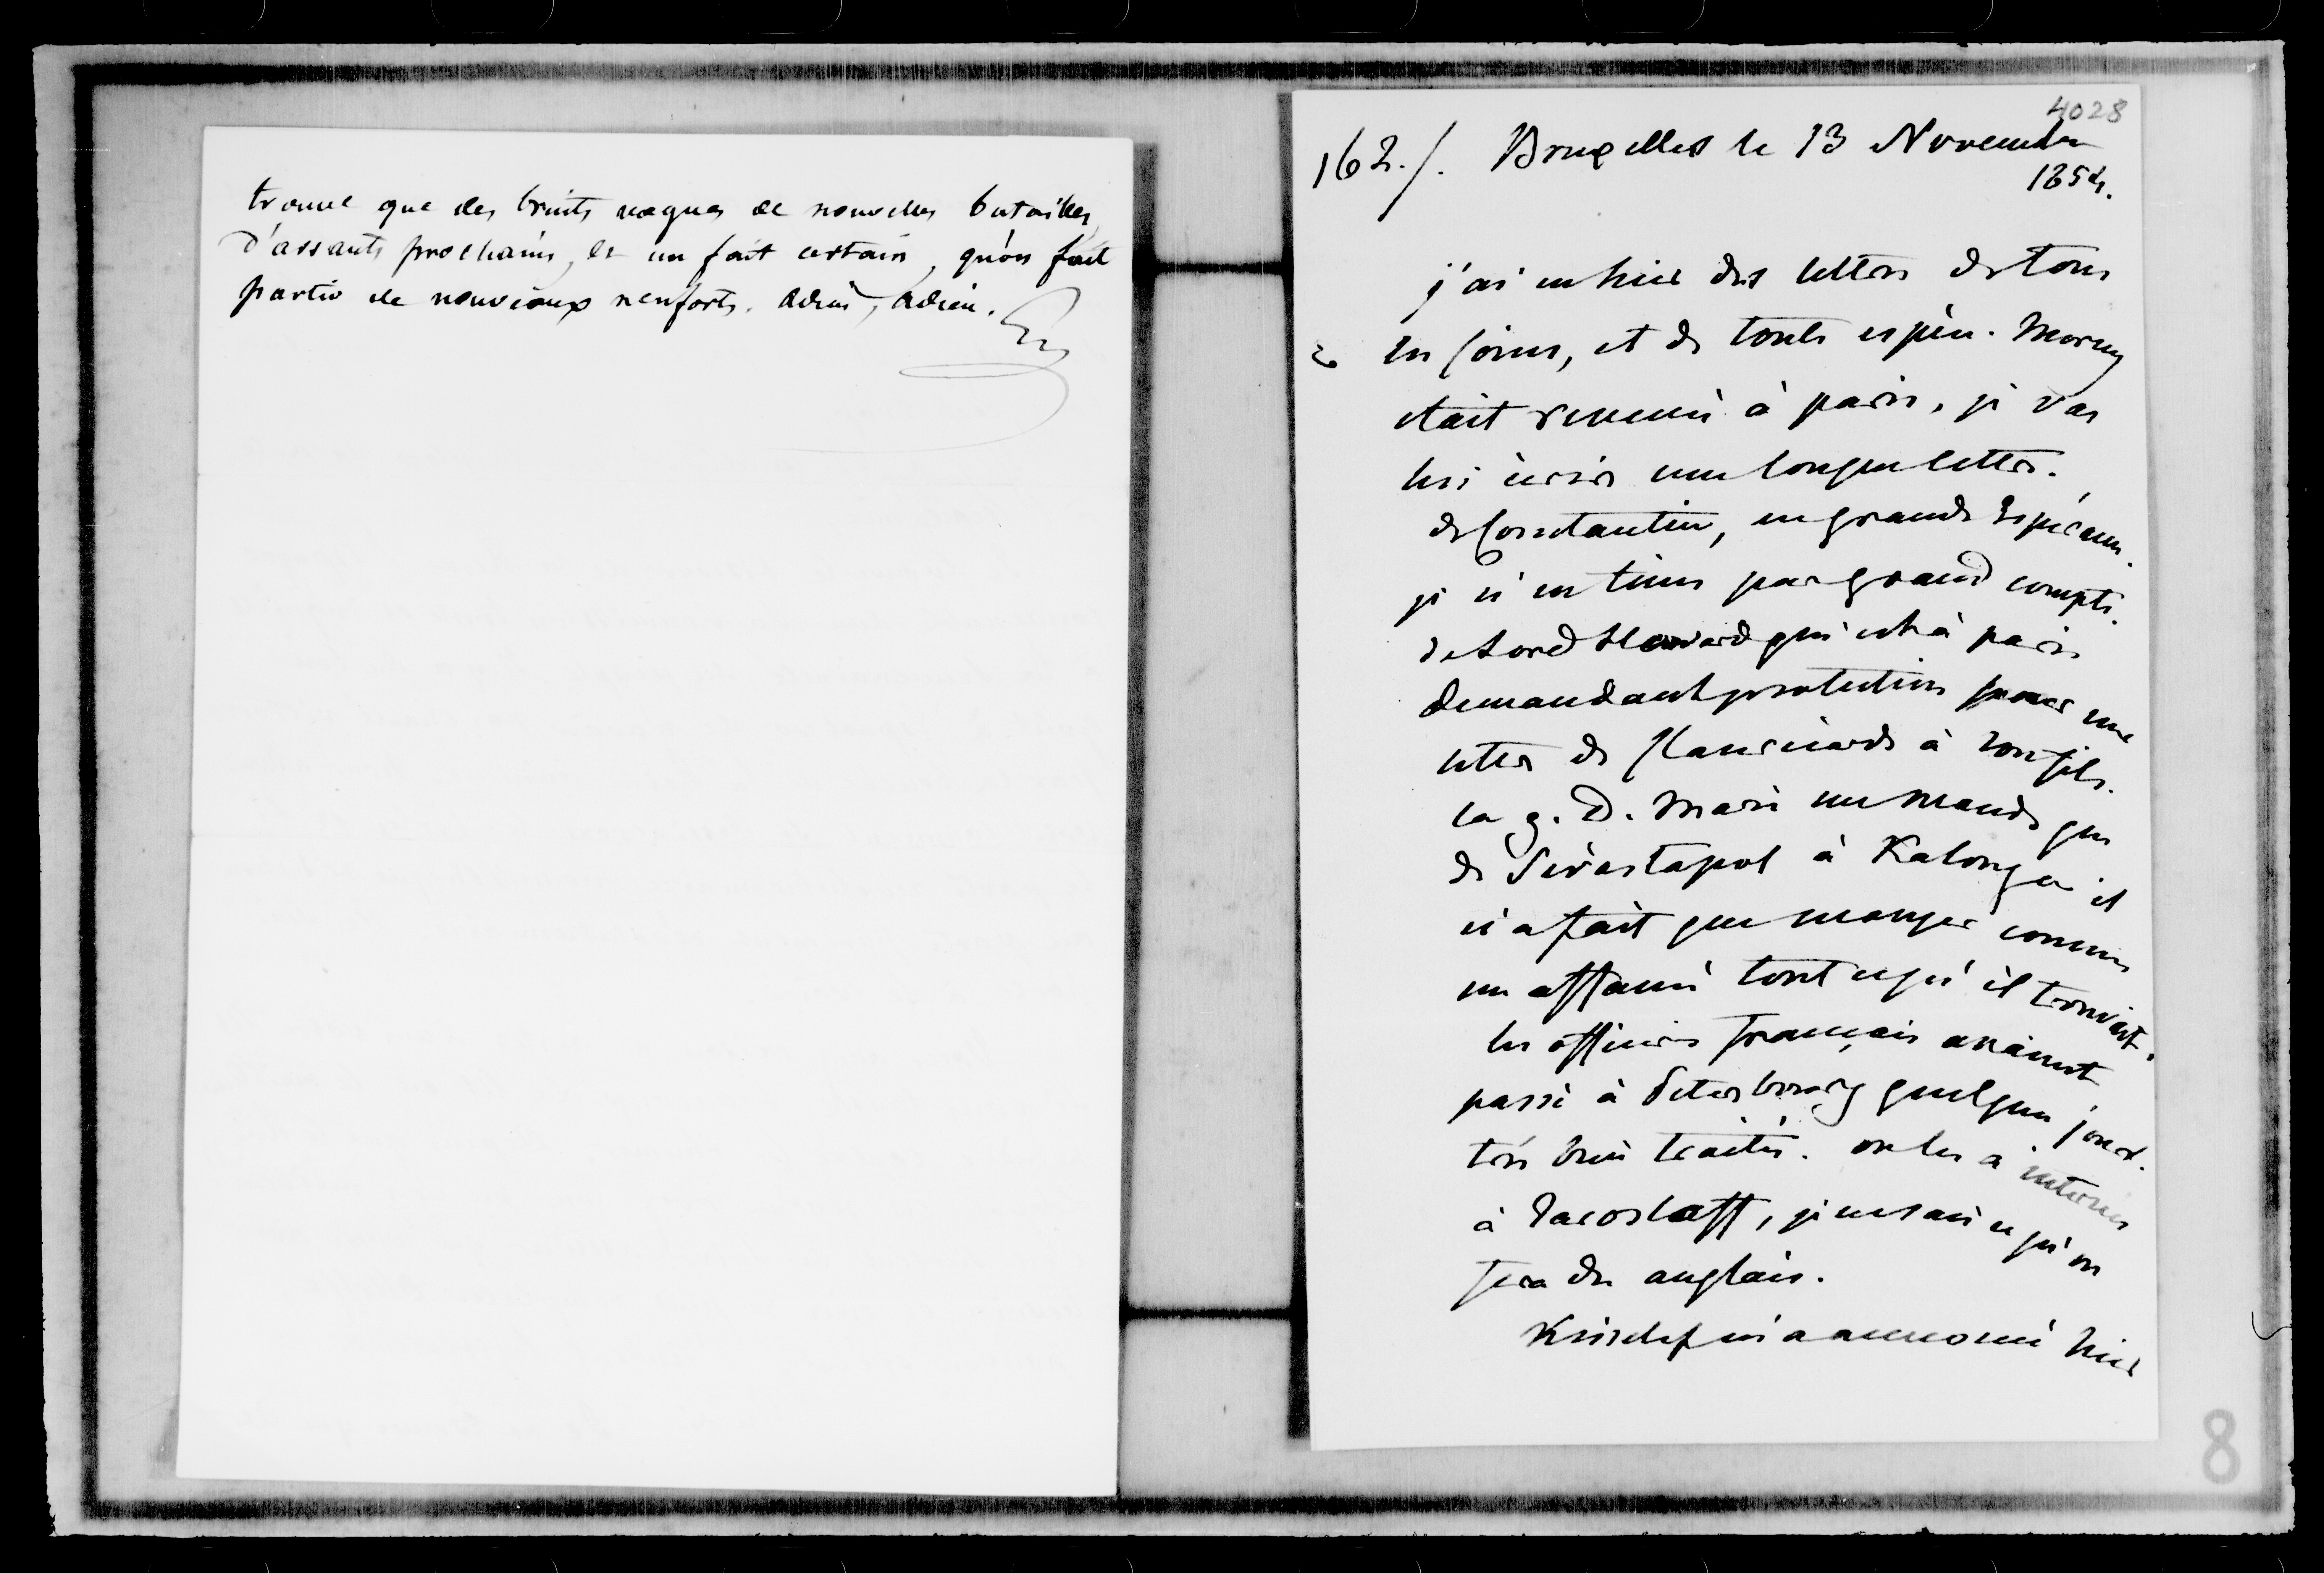 trouve que des bruits vagues de nouvelles batailles,
d'assauts prochains, et un fait certain, qu'on fait
partir de nouveaux renforts. Adieu, Adieu.
4028
162./. Bruxelles le 13 Novembre
1854.
j'ai eu hier des lettres de tous
les coins, et de toute espèce. Morny
était revenu à Paris, je vas
lui écrire une longue lettre.
de Constantin, en grande espérance.
je n'en tiens pas grand compte.
de Lord Howard qui est à Paris
demandant protection pour une
lettre de Clanricarde à son fils.
la g. D. Marie me mande que
de Sévastopol à Kalouga il
n'a fait que manger comme
un affamé tout ce qu'il trouvait.
les officiers français avaient
passé à Petersbourg quelques jours.
très bien traités. on les a internés
à Jaroslaff, je ne sais ce qu'on
fera des anglais.
Kisselef m'a annoncé hier
8